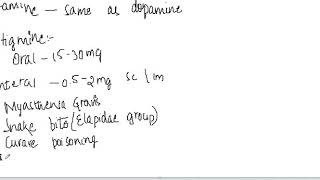 amine — same as dopamine
tigmine:-
Oral - 15-30mg
nteral - 0.5-2mg sc / im
Myasthenia Gravis
Snake bite (Elapidae group)
Curare poisoning